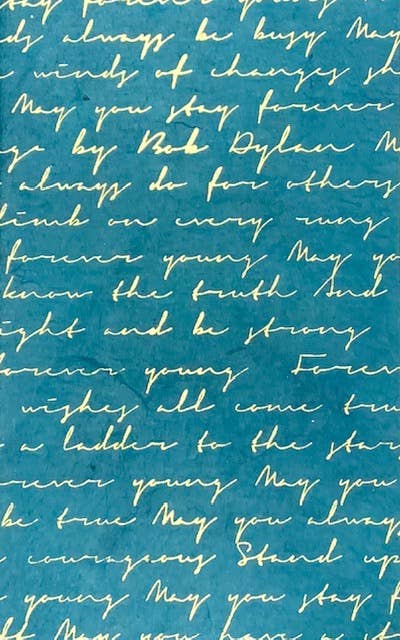 stay forever young
ds always be busy May
winds of changes sh
May you stay forever
ge by Bob Dylan M
always do for others
limb on every rung
forever young May yo
know the truth And
ight and be strong
forever young Forev
wishes all come tru
a ladder to the star
rever young May you
be true May you always
courageous Stand up
young May you stay f
May you have a st